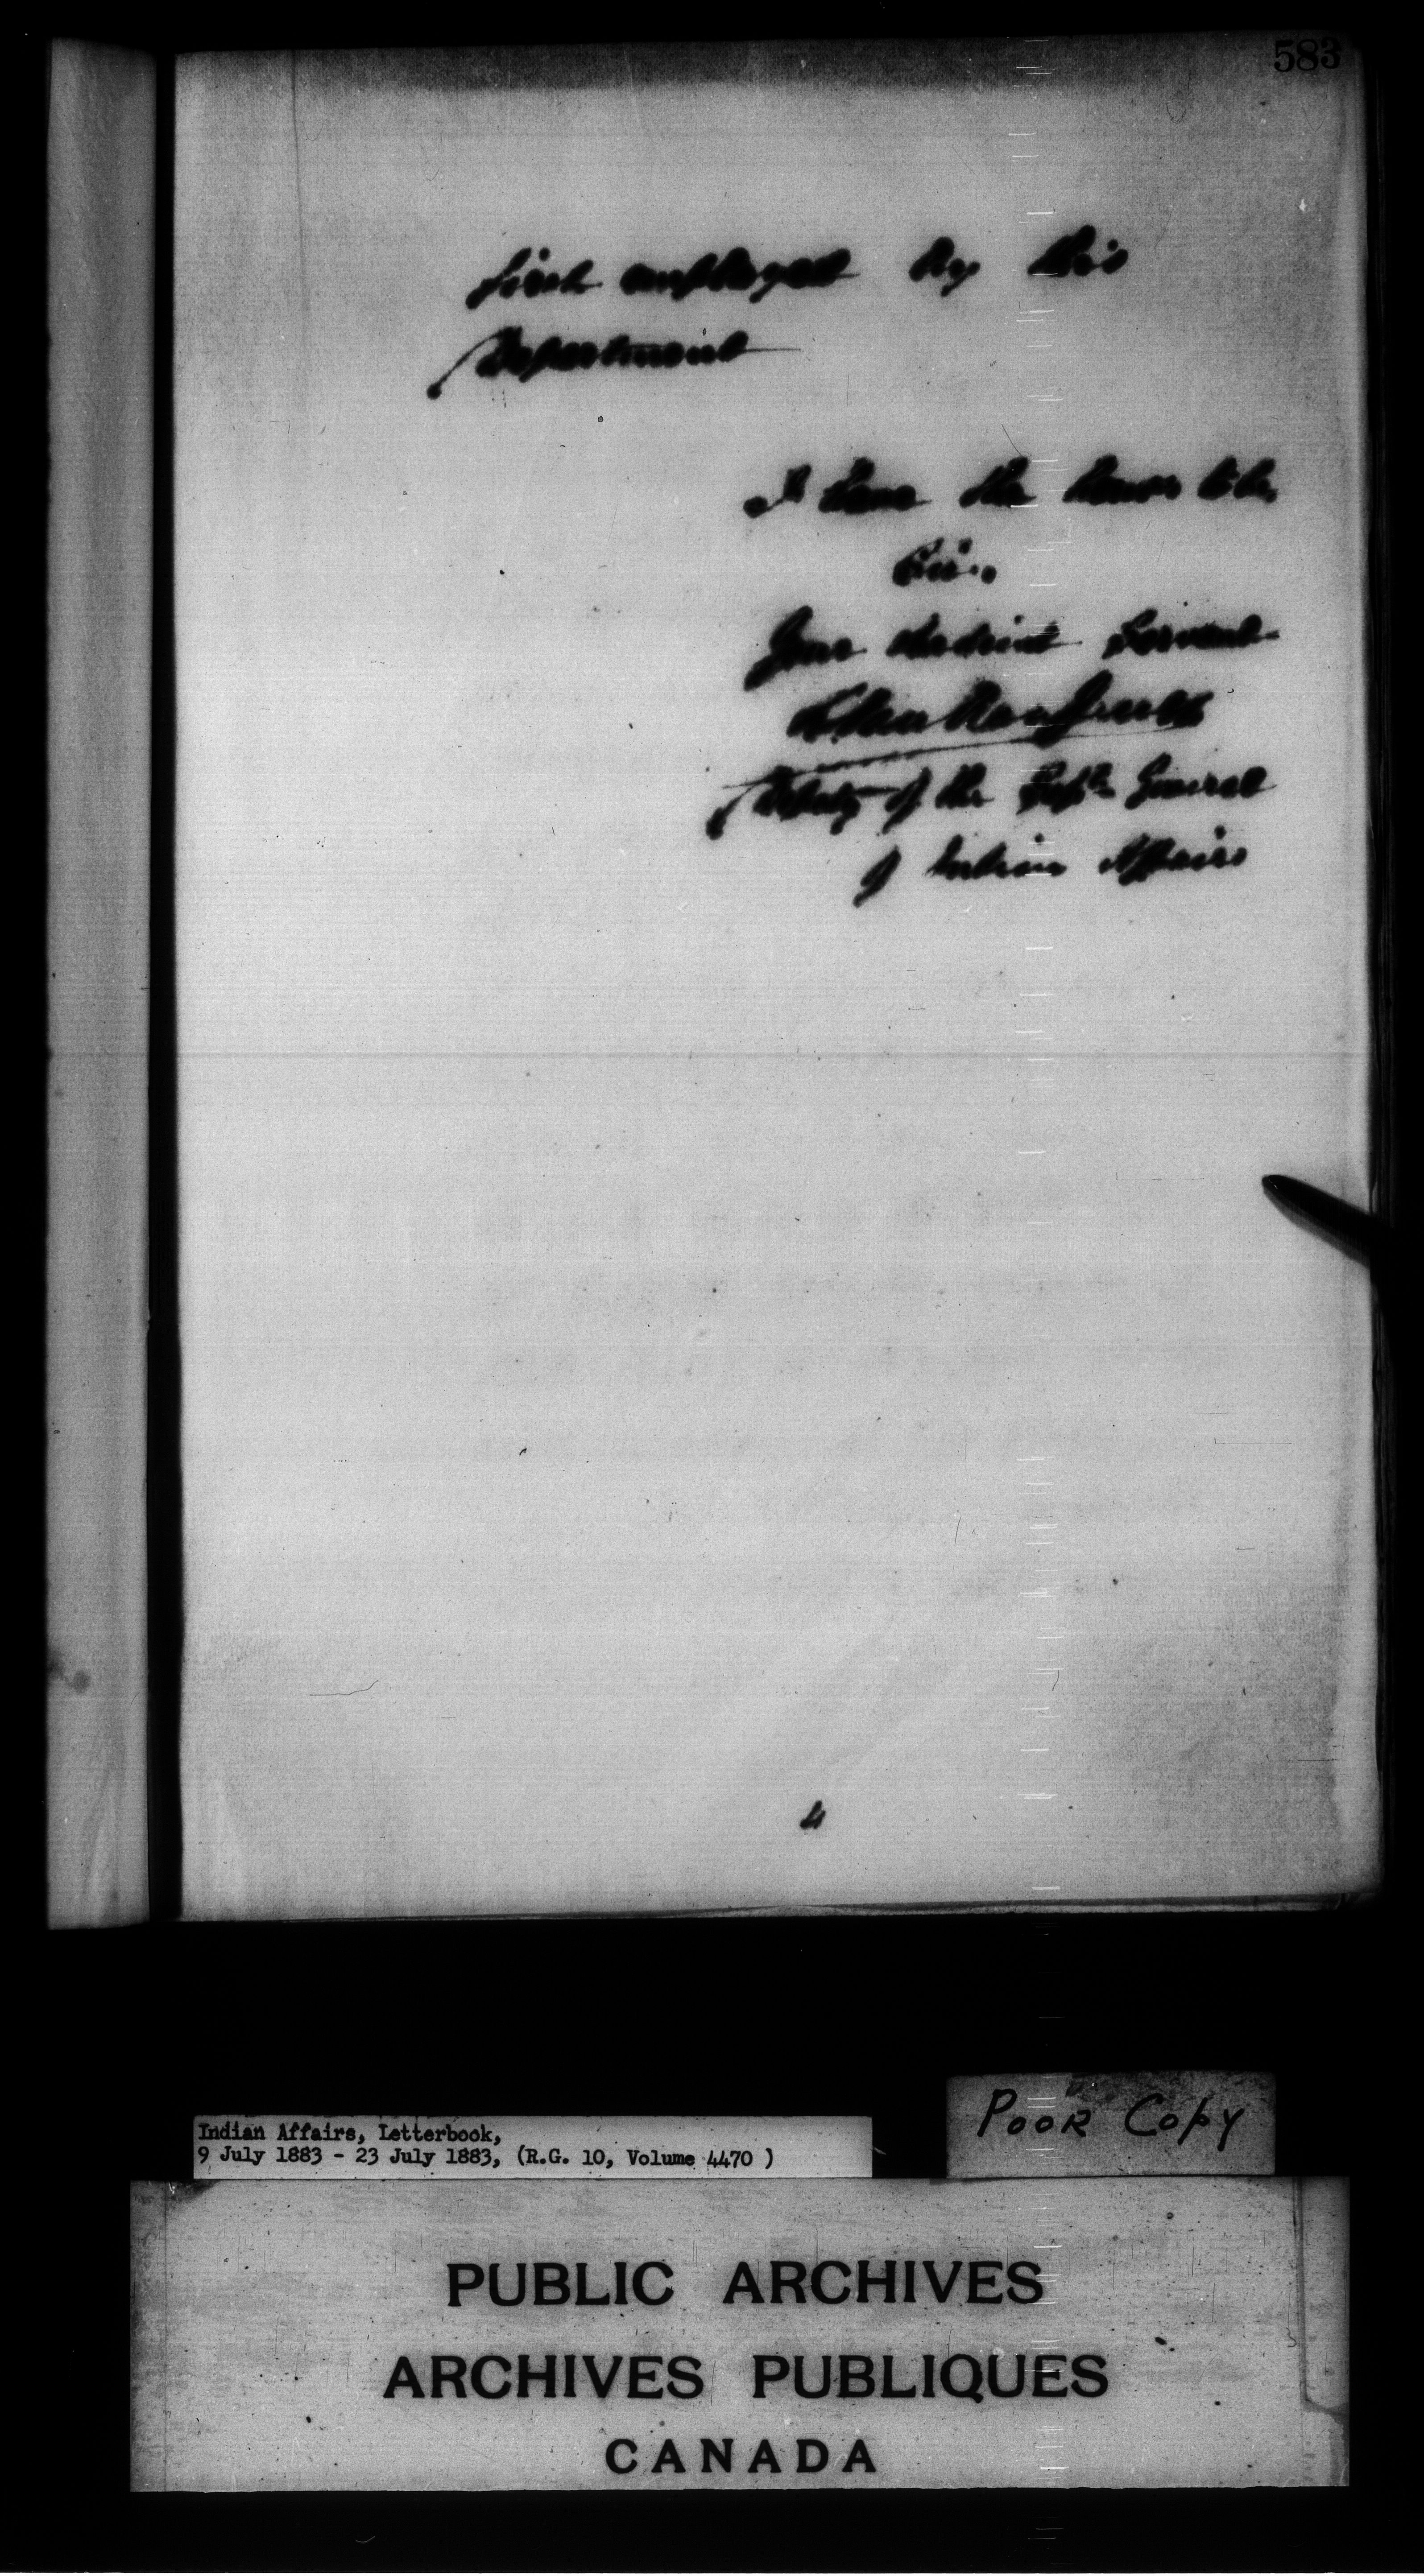 583
first employed by this
Department
I have the honor to be,
Sir,
Your obedient Servant
Deputy of the Supt. General
of Indian Affairs
4
Poor Copy
Indian Affairs, Letterbook,
9 July 1883 - 23 July 1883, (R.G. 10, Volume 4470 )
PUBLIC ARCHIVES
ARCHIVES PUBLIQUES
CANADA